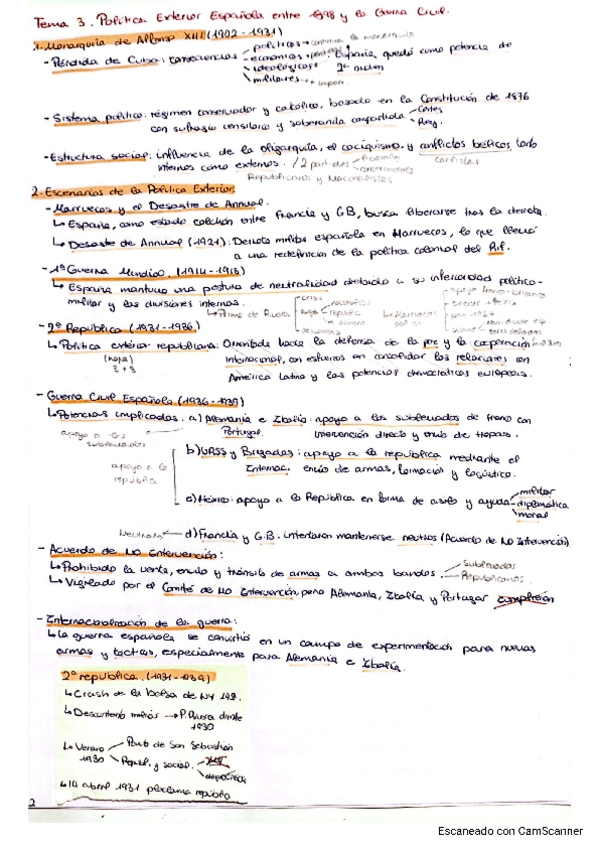 Tema 3. Política Exterior Española entre 1898 y la Guerra Civil.
1. Monarquía de Alfonso XIII (1902-1931)
- Pérdida de Cuba: consecuencias
políticos → continua la monarquía
económicos
ideológicos
militares
España, quedó como potencia de
2º orden
- Sistema político: régimen conservador y católico, basado en la Constitución de 1876
con sufragio censitario y soberanía compartida
Cortes
Rey.
- Estructura social: influencia de la oligarquía, el caciquismo, y conflictos bélicos, tanto
internos como externos. / 2 partidos
liberales
conservadores
carlistas
Republicanos y Nacionalistas
2. Escenarios de la Política Exterior
- Marruecos y el Desastre de Annual.
↳ España, como estado colchón entre Francia y GB, busca liberarse tras la derrota.
↳ Desastre de Annual (1921): Derrota militar española en Marruecos, lo que llevó
a una redefinición de la política colonial del Rif.
- 1ª Guerra Mundial (1914-1918)
↳ España mantuvo una postura de neutralidad debido a su inferioridad político-
militar y las divisiones internas.
↳ Primo de Rivera
crisis
- 2ª República (1931-1936)
↳ Política exterior republicana: Orientada hacia la defensa de la paz y la cooperación
internacional, con esfuerzos en consolidar las relaciones con
América Latina y las potencias democráticas europeas.
- Guerra Civil Española (1936-1939)
↳ Potencias implicadas: a) Alemania e Italia: apoyo a los sublevados de Franco con
Portugal. intervención directa y envío de tropas.
apoyo a los
sublevados
b) URSS y Brigadas: apoyo a la república mediante el
Internac. envío de armas, formación y logística.
apoyo a la
república
c) México: apoyo a la República en forma de asilo y ayuda
militar
diplomática
moral
Neutrales ← d) Francia y G.B. intentaron mantenerse neutros (Acuerdo de No Intervención)
- Acuerdo de NO Intervención:
↳ Prohibido la venta, envío y tránsito de armas a ambos bandos.
Sublevados
Republicanos.
↳ Vigilado por el Comité de NO Intervención, pero Alemania, Italia y Portugal
- Internacionalización de la guerra:
↳ La guerra española se convirtió en un campo de experimentación para nuevas
armas y tácticas, especialmente para Alemania e Italia.
2ª republica (1931-1939)
↳ Crash de la bolsa de NY
↳ Descontento → P. Rivera dimite
1930
↳ Verano
1930
Pacto de San Sebastián
Republ. y social.
↳ 14 abril 1931 proclama república
2
Escaneado con CamScanner